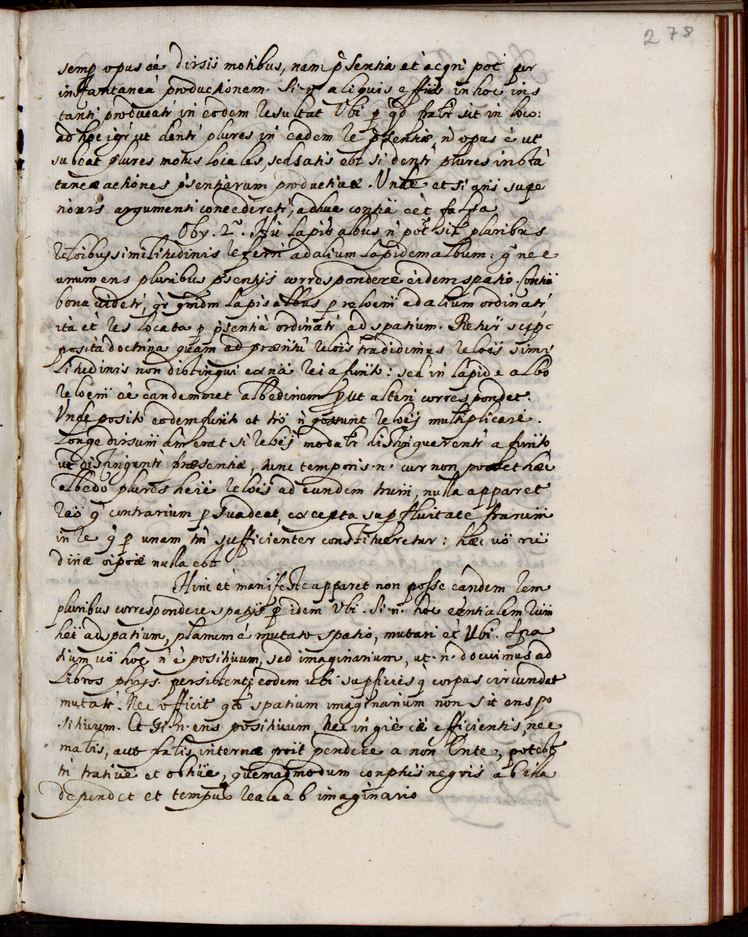 278
semp opus ee dirsis motibus, nam p̃sentia et acqri pot per
instantaneā productionem. Si .n. aliquis effūs in hoc ins
tanti producati in eodem resultat Ubi p qd̃ fatr sit in loco:
ad hoc igr̃ ut denti plures in eadem re p̃sentiæ, ñ opus ē ut
subeat plures motus locales, sed satis est si denti plures insta
taneæ actiones p̃sentiarum productiuæ. Unde et si añs supe
rioris argumenti concedereti, adhuc contia eet falsa
Oby. 2ᵒ. Hic lapis albus ñ pot sit pluribus
reloibus similitudinis referri ad alium lapidem album: gr̃ nec
unum ens pluribus p̃sentijs correspondere eidem spatio. Contia
bona videti, qr quemdm lapis albus p reloem ad alium ordinati
ita et res locata p p̃sentia ordinati ad spatium. Retur sup-
posita doctrina quam ad præntũ relois tradidimus reloes simi
litudinis non distingui ex na rei a funto: sed in lapide albo
reloem ee eandemmet albedinem put alteri correspondet.
Unde posito eodem funto et tro ñ possunt reloes multiplicare.
Longe dirsum dm̃ erat si reloes modatr distinguerenti a funto
ut distinguenti præsentiæ, tunc temporis .n. cur non posset hæc
albedo plures here reloes ad eundem trum, nulla apparet
rao q contrarium psuadeat, excepta superfluitate
in re q p unam tm̃ sufficienter constitueretur: hæc uo
nulla est
Hinc et manifeste apparet non posse eandem rem
pluribus correspondere spatijs p idem Ubi. Si .n. hoc eentialem
het ad spatium, planum ē mutato spatio, mutari et Ubi. Spa
tium uo hoc ñ ē positiuum, sed imaginarium, ut .n. docuimus ad
Libros phys. persistente eodem ubi supficies q corpus circundat
mutati. Nec officit qd spatium imaginarium non sit ens po
sitiuum. Et si .n. ens positiuum nec in gñe cæ efficientis, nec
matis, aut fatis internæ proit pendere a non Ente, potest
tm̃ tratiue et obtiue, quemadmodum conptus negris ab illa
dependet et tempus reale ab imaginario